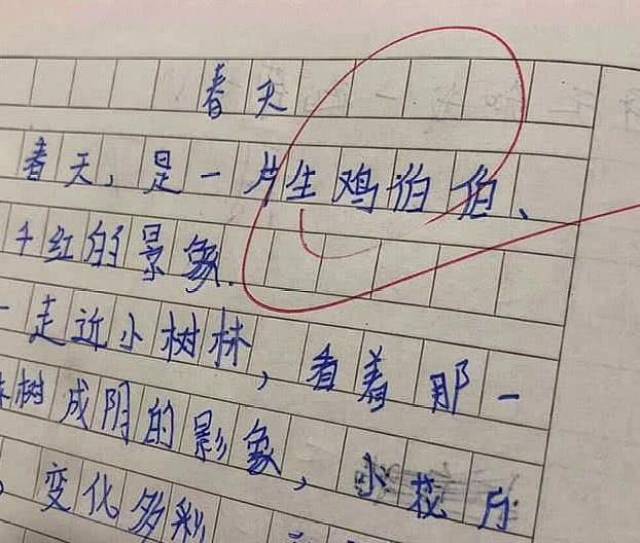 春天
春天，是一片生鸡泊伯、
千红的景象.
一走近小树林，看着那一
树成阴的影象，小花片
变化多彩